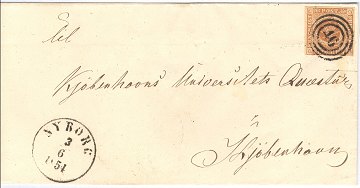 Til
Kjöbenhavns Universitets Quæstur
i
Kjöbenhavn
NYBORG
3
6
1854